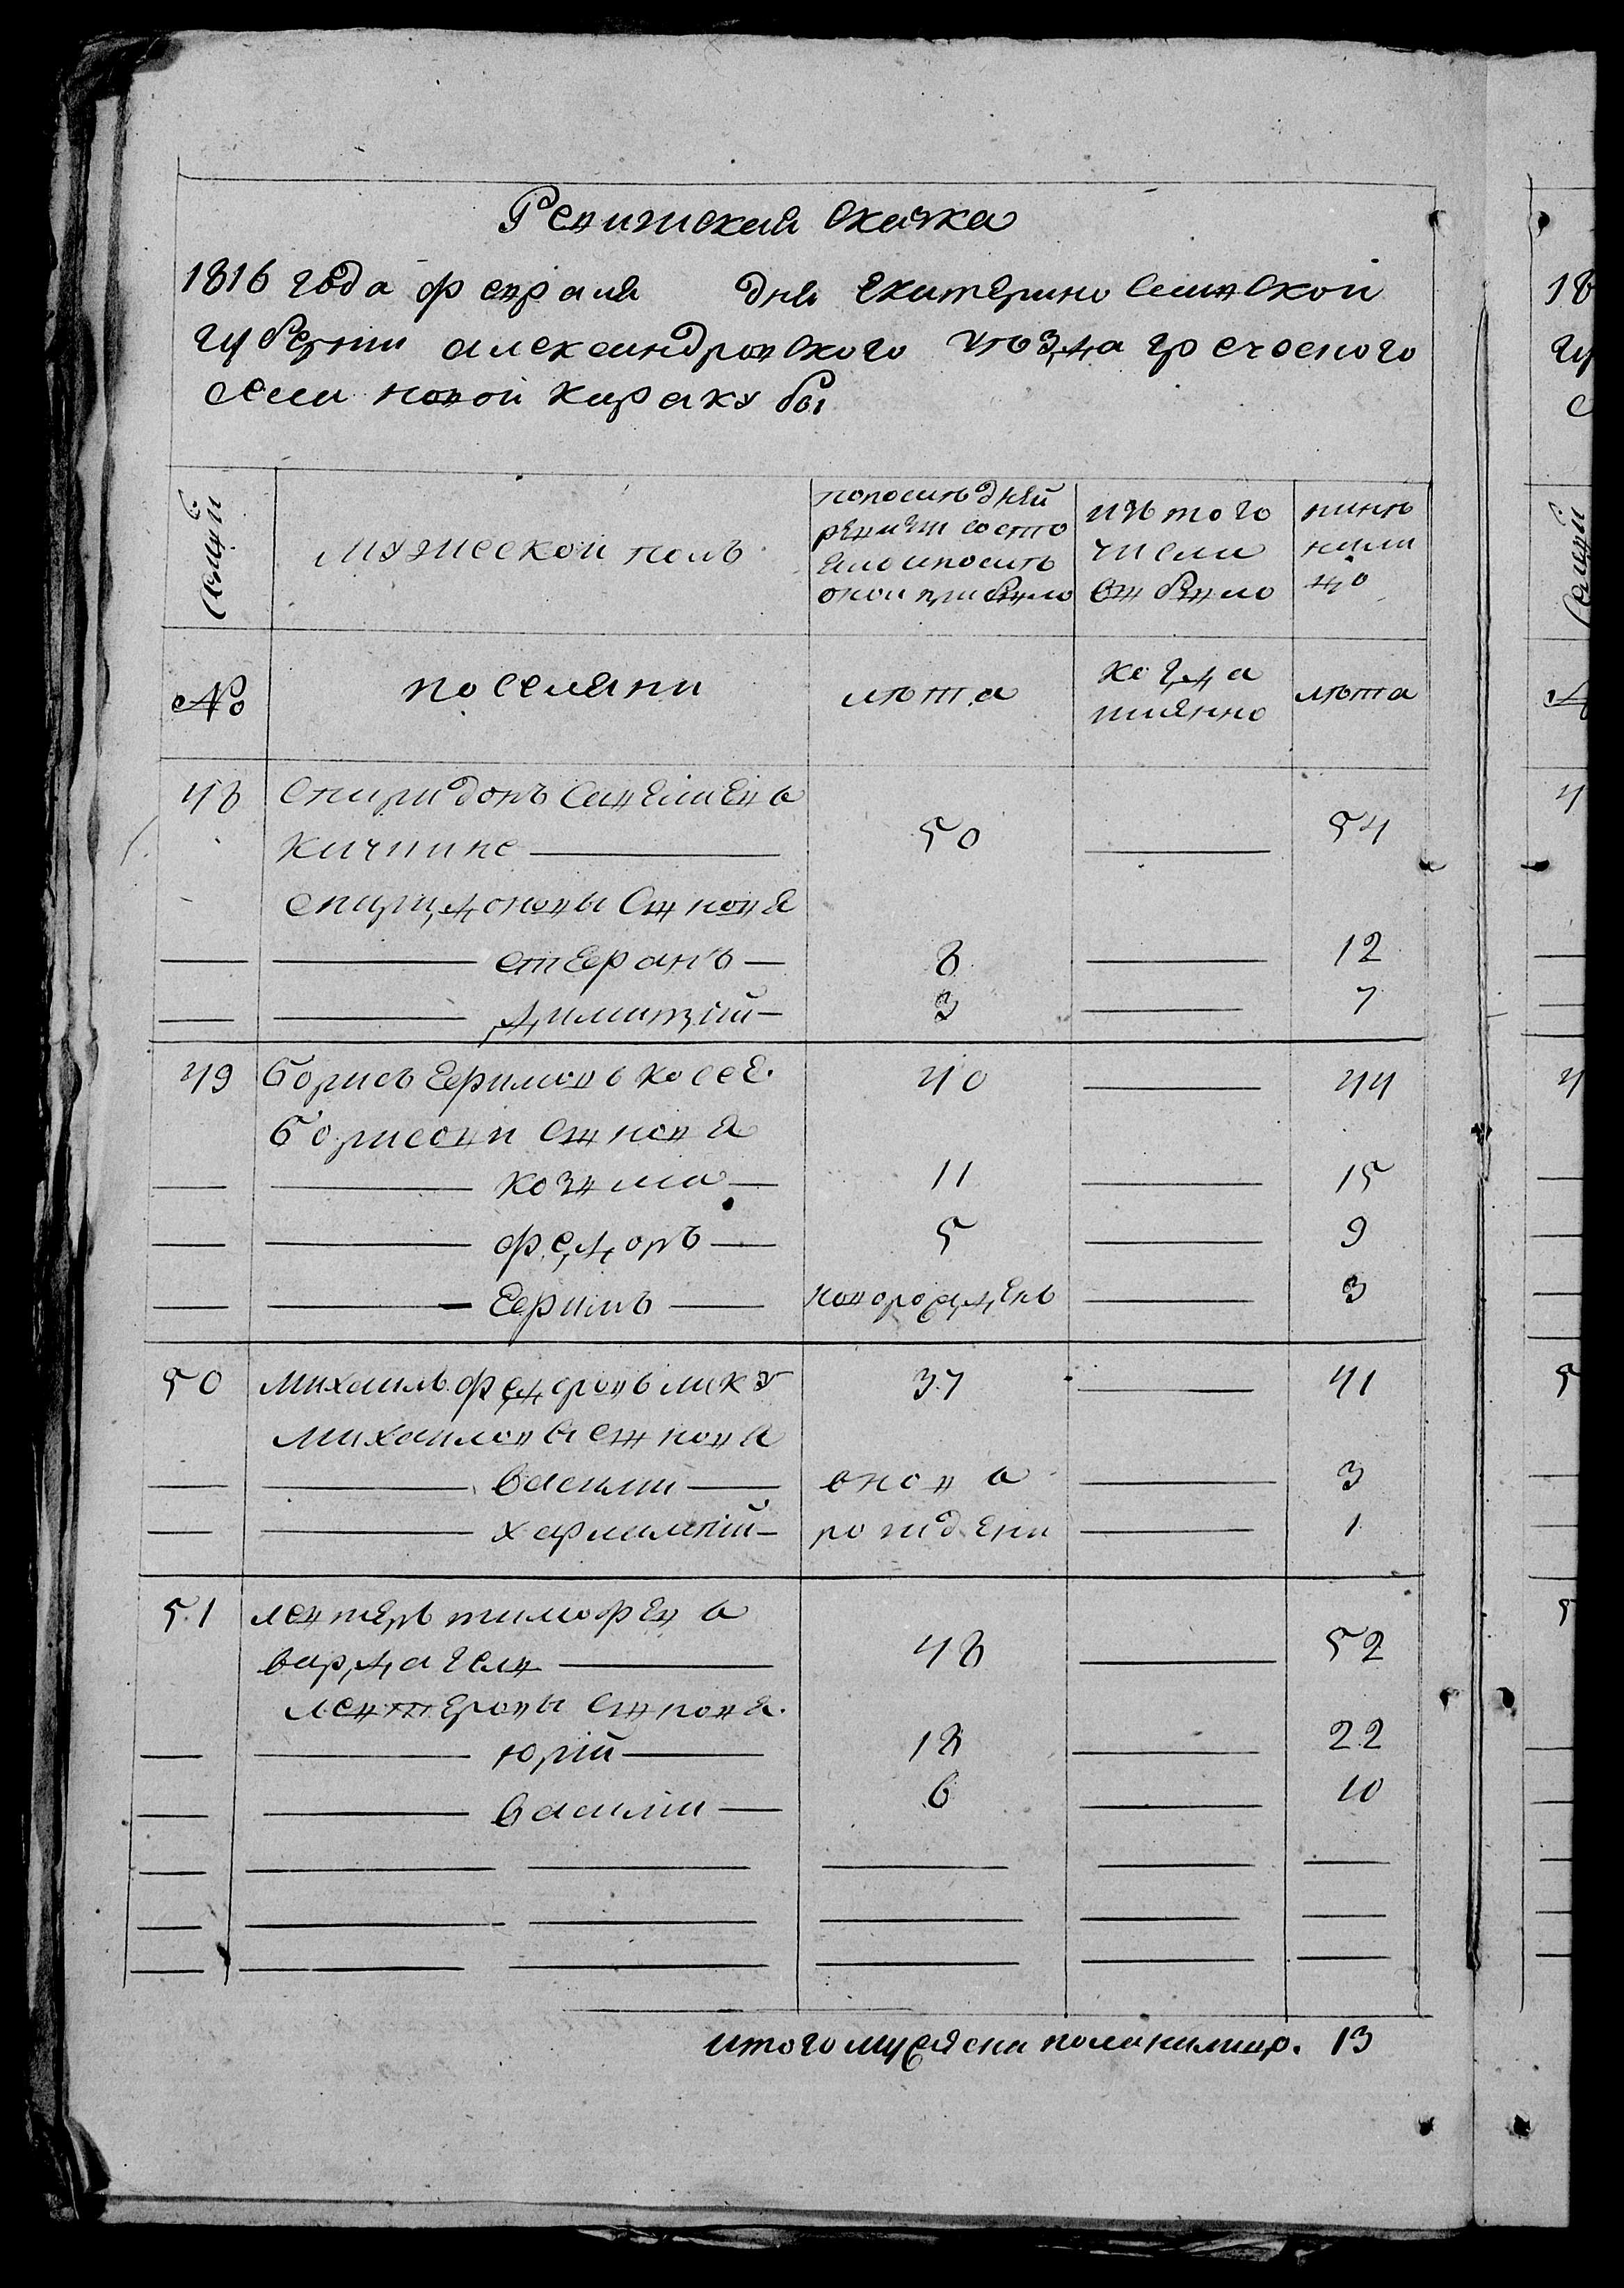 Ревижская скаска
1816 года февраля дня екатериносланской
губернии александровского уѣзда греческого
села новой каракубы
Семьи
мужеской полъ
по последней
ревизіи состо
яло и послѣ
оной прибыло
изъ того
числа
выбыло
нинѣ
нали
цо
№
поселяни
лѣта
когда
имянно
лѣта
48 Спиридонъ Савельевъ
Кичшие 50 54
спиридоновы сыновя
стефанъ 8 12
Димитрій 3 7
49 Борисъ Ефимовъ косее 40 44
Борисови сыновя
козма 11 15
федоръ 5 9
Ефимъ новорожденъ 3
50 Михаилъ федоровъ лику 37 41
Михаиловы сыновя
василии вновъ 3
харлампій рождени 1
51 левтеръ тимофеевъ
вардагели 48 52
левтеровы сыновя
юрій 18 22
василіи 6 10
итого мужеска пола налицо. 13